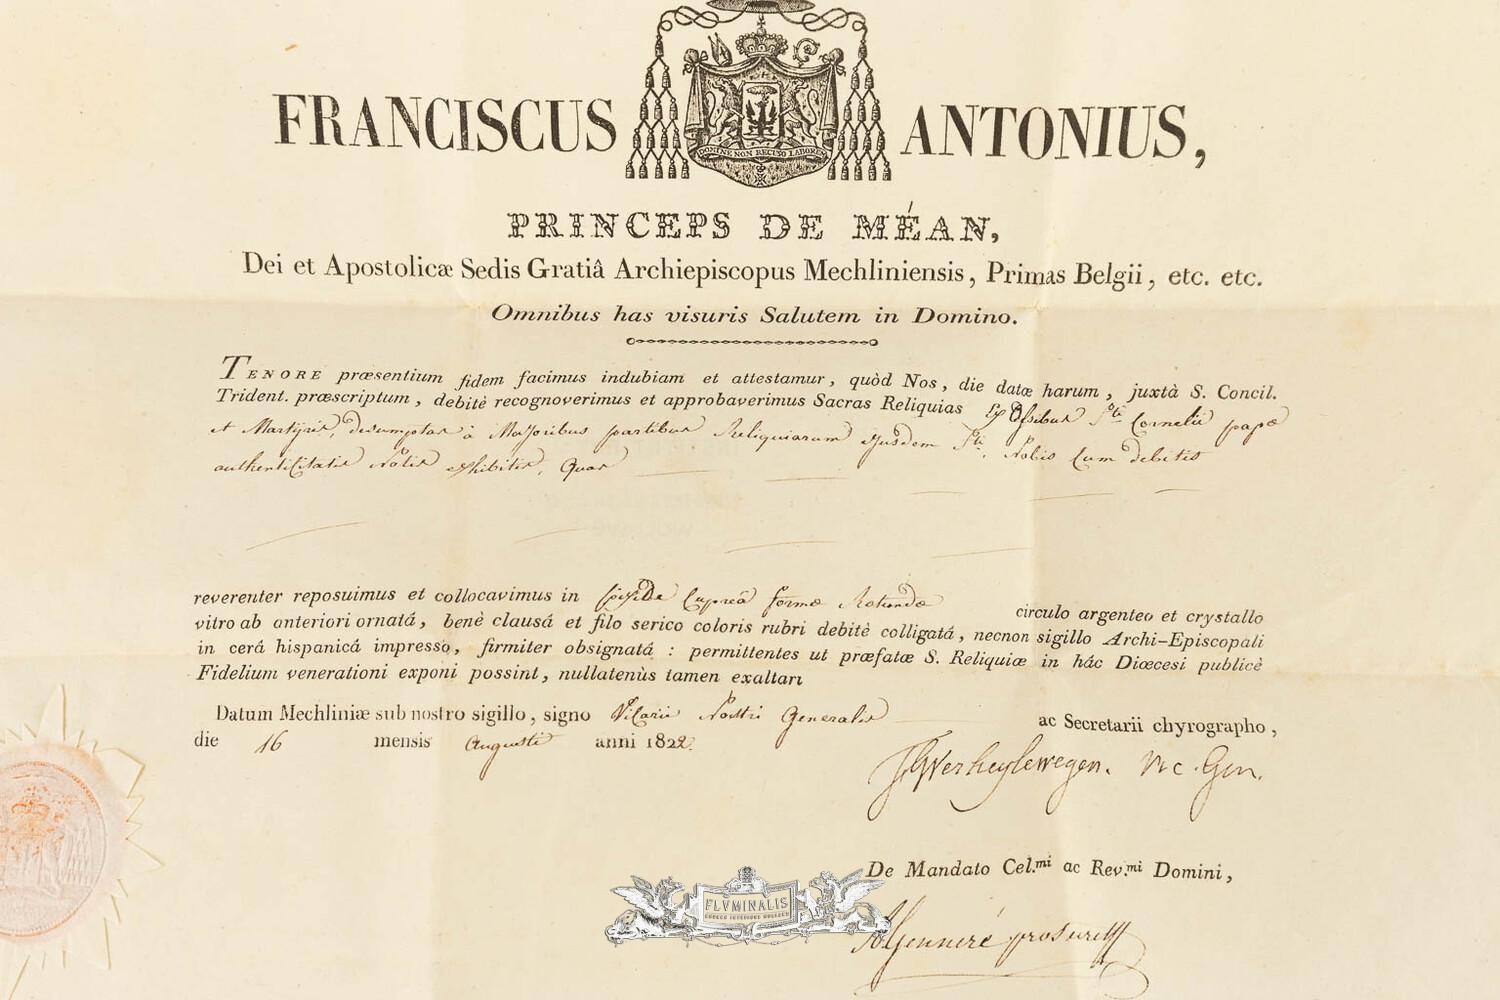 DOMINE NON RECUSO LABOREM
FRANCISCUS ANTONIUS,
PRINCEPS DE MÉAN,
Dei et Apostolicæ Sedis Gratiâ Archiepiscopus Mechliniensis, Primas Belgii, etc. etc.
Omnibus has visuris Salutem in Domino.
TENORE præsentium fidem facimus indubiam et attestamur, quòd Nos, die datæ harum, juxtà S. Concil.
Trident. præscriptum, debitè recognoverimus et approbaverimus Sacras Reliquias Ex Ossibus Sti Cornelii papæ
et Martyris, desumptas à Majoribus partibus Reliquiarum ejusdem Sti, Nobis cum debitis
authenticitatis Notis exhibitis, quas
reverenter reposuimus et collocavimus in pixide cupreâ formæ Rotundæ circulo argenteo et crystallo
vitro ab anteriori ornatá, benè clausá et filo serico coloris rubri debitè colligatá, necnon sigillo Archi-Episcopali
in cerá hispanicá impresso, firmiter obsignatá : permittentes ut præfatæ S. Reliquiæ in hác Diœcesi publicè
Fidelium venerationi exponi possint, nullatenùs tamen exaltari
Datum Mechliniæ sub nostro sigillo, signo Vicarii Nostri Generalis ac Secretarii chyrographo,
die 16 mensis Augusti anni 1822.
JG Verheylewegen. Vic. Gen.
De Mandato Cel.mi ac Rev.mi Domini,
FLVMINALIS